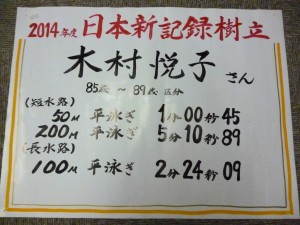 2014年度 日本新記録樹立
木村悦子さん
85歳 ～ 89歳 区分
(短水路)
50M 平泳ぎ 1分00秒45
200M 平泳ぎ 5分10秒89
(長水路)
100M 平泳ぎ 2分24秒09